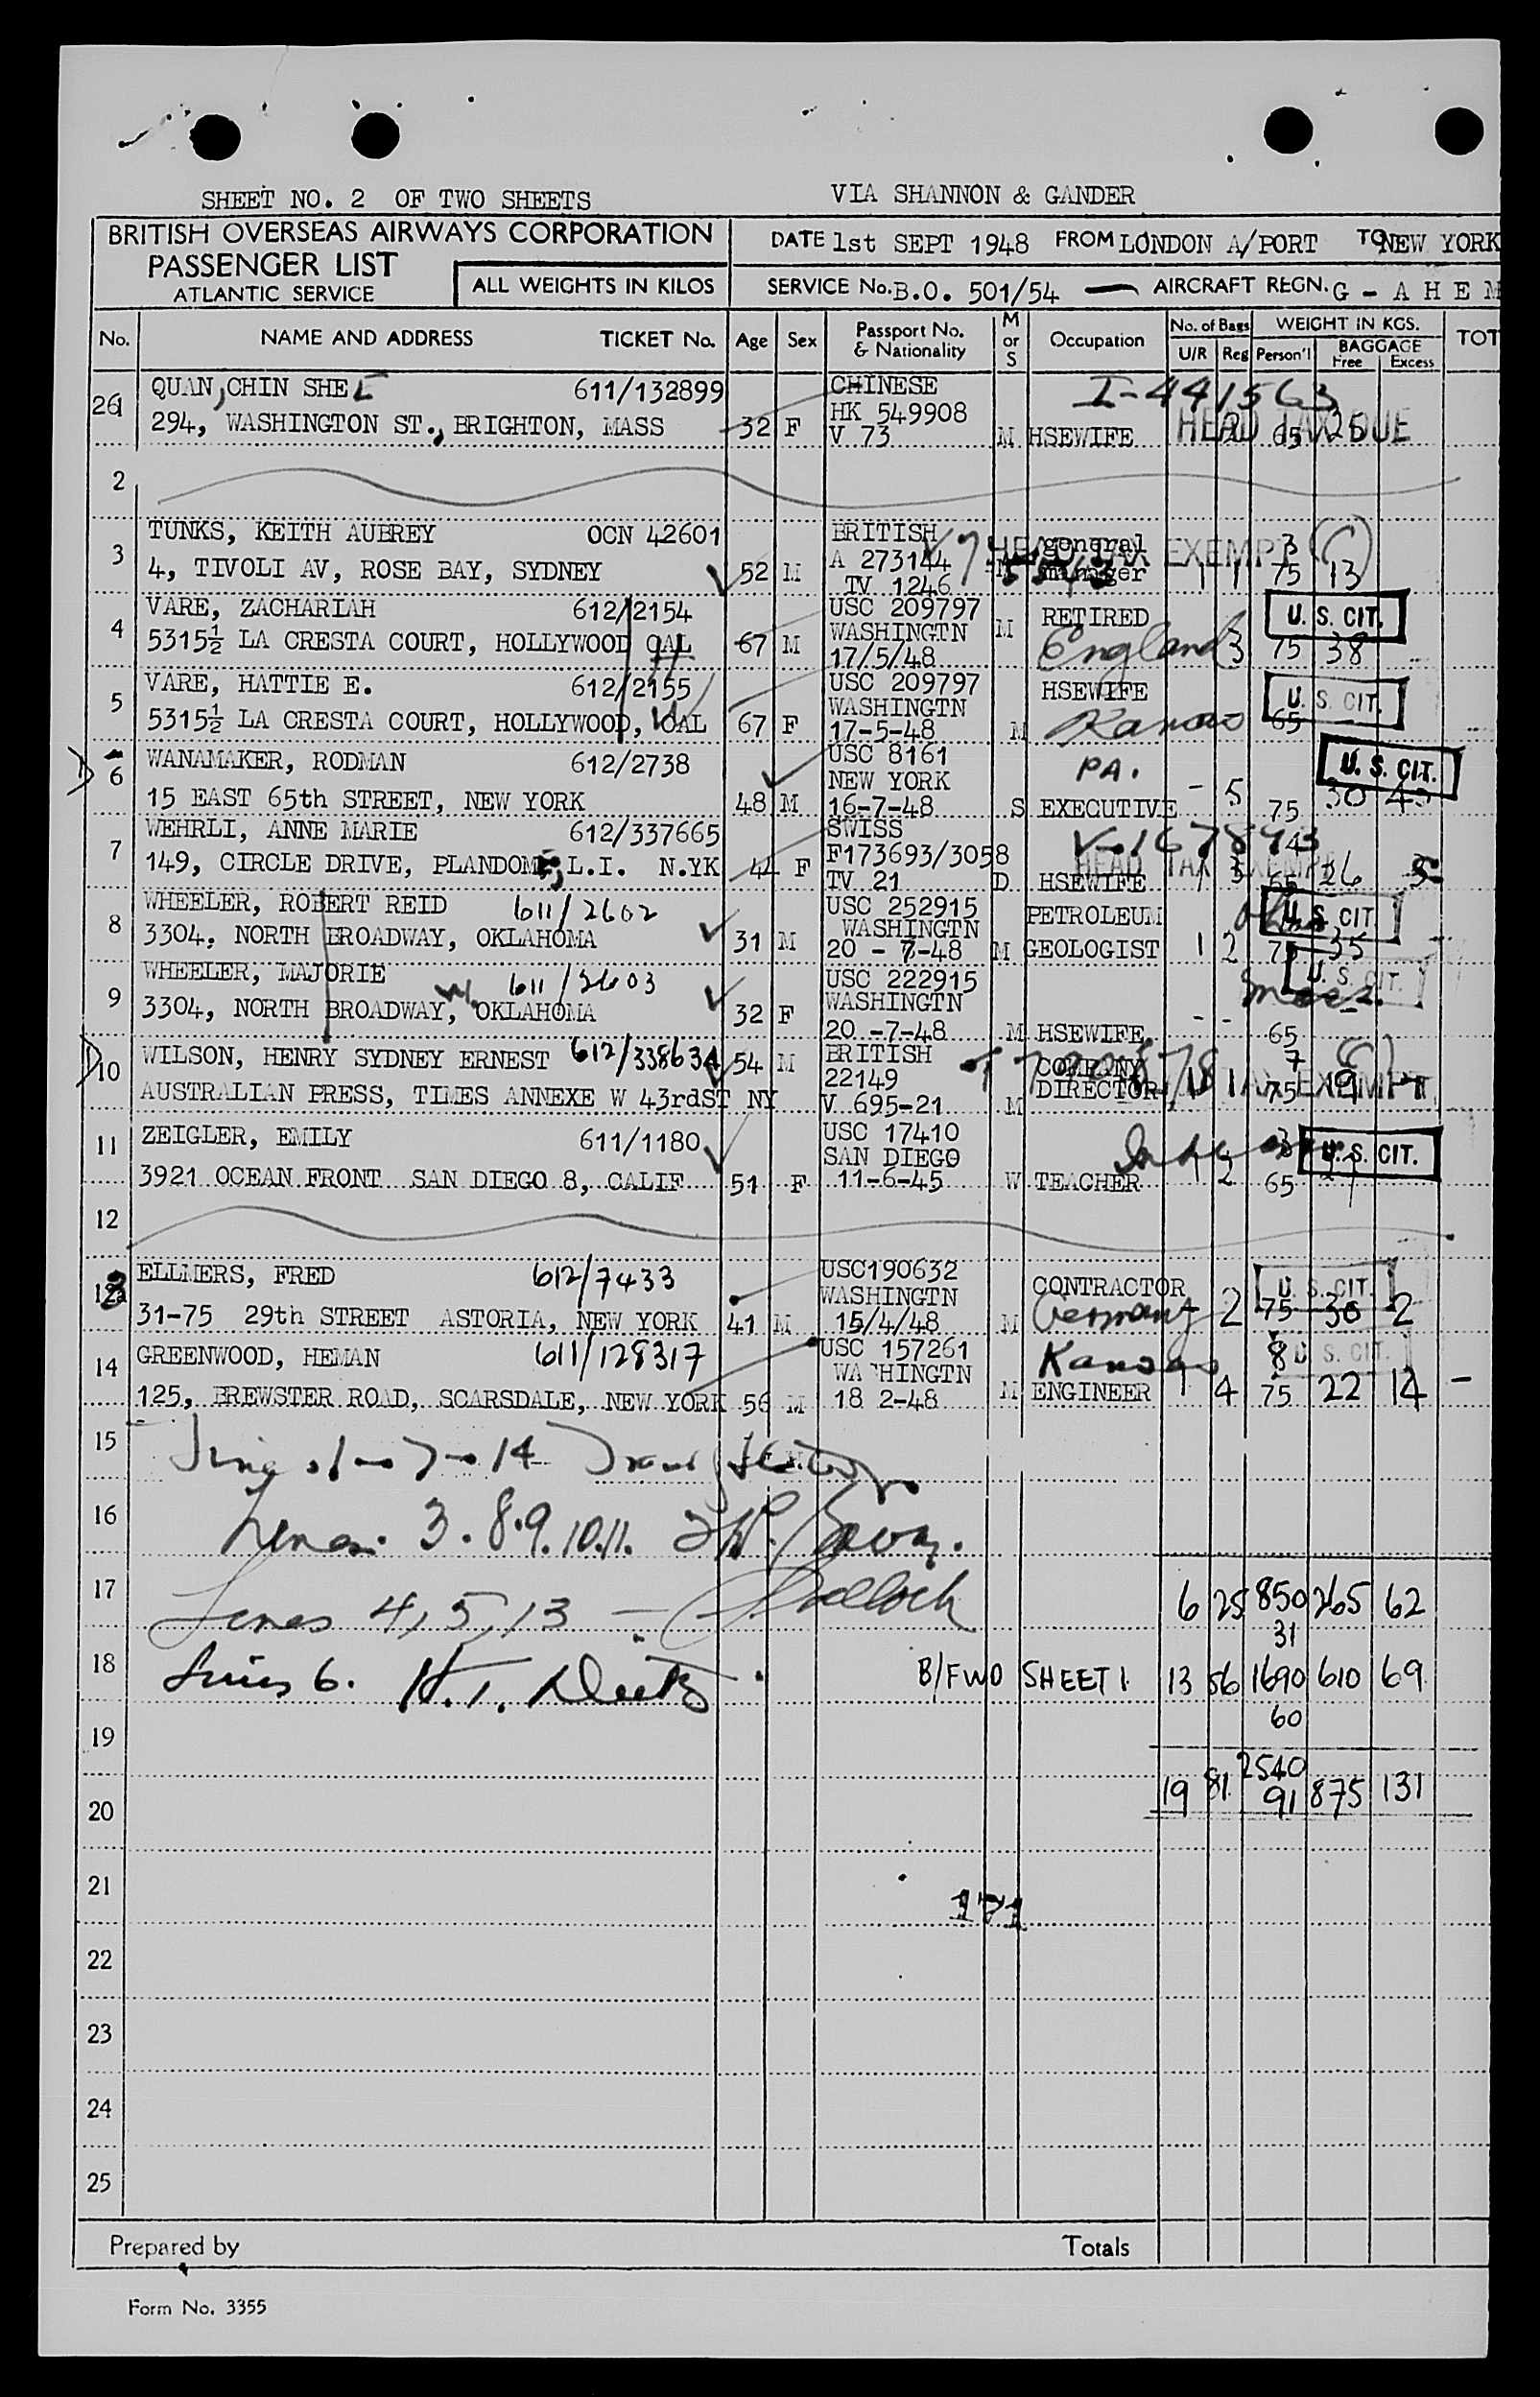 SHEET NO. 2 OF TWO SHEETS
VIA SHANNON & GANDER
BRITISH OVERSEAS AIRWAYS CORPORATION
PASSENGER LIST
ATLANTIC SERVICE
ALL WEIGHTS IN KILOS
DATE 1st SEPT 1948 FROM LONDON A/PORT TO NEW YORK
SERVICE No. B.O. 501/54 — AIRCRAFT REGN. G - A H E M
No. NAME AND ADDRESS TICKET No. Age Sex Passport No. & Nationality M or S Occupation No. of Bags U/R Reg WEIGHT IN KGS. Person'l BAGGAGE Free Excess TOT
QUAN, CHIN SHEE 611/132899 CHINESE I-441563
26 294, WASHINGTON ST., BRIGHTON, MASS 32 F HK 549908
V 73 M HSEWIFE HEAD TAX DUE 2 65 26
2
TUNKS, KEITH AUBREY OCN 42601 BRITISH general HEAD TAX EXEMPT 3 (C)
3 4, TIVOLI AV, ROSE BAY, SYDNEY 52 M A 273144 manager 1 1 75 13
TV 1246
VARE, ZACHARIAH 612/2154 USC 209797 RETIRED U. S. CIT.
4 5315½ LA CRESTA COURT, HOLLYWOOD CAL 67 M WASHINGTN M England 3 75 38
17/5/48
VARE, HATTIE E. 612/2155 USC 209797 HSEWIFE U. S. CIT.
5 5315½ LA CRESTA COURT, HOLLYWOOD, CAL 67 F WASHINGTN Kansas 65
17-5-48 M
WANAMAKER, RODMAN 612/2738 USC 8161 PA. U. S. CIT.
6 NEW YORK
15 EAST 65th STREET, NEW YORK 48 M 16-7-48 S EXECUTIVE - 5 75 30 43
WEHRLI, ANNE MARIE 612/337665 SWISS V-167893
7 149, CIRCLE DRIVE, PLANDOME, L.I. N.YK 44 F F173693/3058 HEAD TAX EXEMPT
TV 21 D HSEWIFE 1 3 65 26 5
WHEELER, ROBERT REID 611/2602 USC 252915 PETROLEUM U. S. CIT.
8 3304, NORTH BROADWAY, OKLAHOMA 31 M WASHINGTN
20 - 7-48 M GEOLOGIST 1 2 75 35
WHEELER, MAJORIE 611/2603 USC 222915 U. S. CIT.
9 3304, NORTH BROADWAY, OKLAHOMA 32 F WASHINGTN
20 -7-48 M HSEWIFE - - 65 -
WILSON, HENRY SYDNEY ERNEST 612/338634 54 M BRITISH COMPANY 7 (C)
10 22149 DIRECTOR 1 75 19 TAX EXEMPT
AUSTRALIAN PRESS, TIMES ANNEXE W 43rdST NY V 695-21 M
ZEIGLER, EMILY 611/1180 USC 17410
11 SAN DIEGO U. S. CIT.
3921 OCEAN FRONT SAN DIEGO 8, CALIF 51 F 11-6-45 W TEACHER 1 2 65 21
12
ELLMERS, FRED 612/7433 USC190632 CONTRACTOR U. S. CIT.
13 WASHINGTN
31-75 29th STREET ASTORIA, NEW YORK 41 M 15/4/48 M Germany - 2 75 30 2
GREENWOOD, HEMAN 611/128317 USC 157261 Kansas 8 U. S. CIT.
14 WA HINGTN
125, BREWSTER ROAD, SCARSDALE, NEW YORK 56 M 18 2-48 M ENGINEER 1 4 75 22 14 -
15
16 Lines. 3. 8. 9. 10. 11.
17 Lines 4, 5, 13 — 6 25 850 265 62
31
18 Lines 6. B/FWD SHEET 1. 13 56 1690 610 69
60
19
2540
20 19 81 91 875 131
21
171
22
23
24
25
Prepared by Totals
Form No. 3355